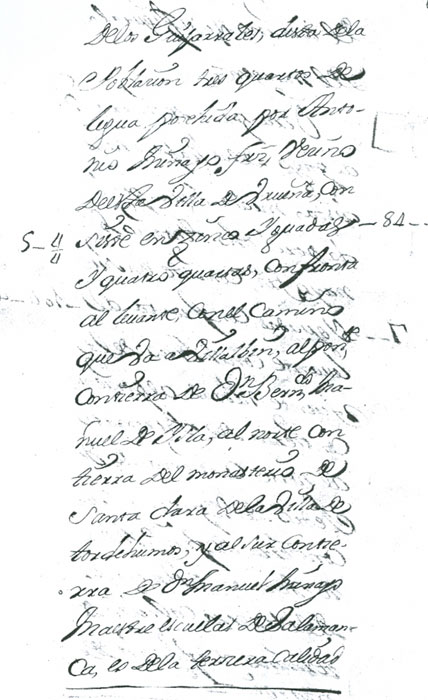 Delos Guijarrales, dista dela
Poblazion tres quartos de
legua posehida por Anto-
nio
Desta Villa de Urueña, con
5-4/4 siste en zinco Yguadas - 84 -
Y quatro quartas, confronta
al levante, con el Camino
que va a Villalbin, al pon.te
con tierra de Dn Bern.do Ma-
nuel de Pita, al norte con
tierra del monasterio de
Santa clara dela Villa de
tordehumos, y al sur con tie-
rra de Dn Manuel
Maestre escuelas de Salaman-
ca, es dela terzera Calidad